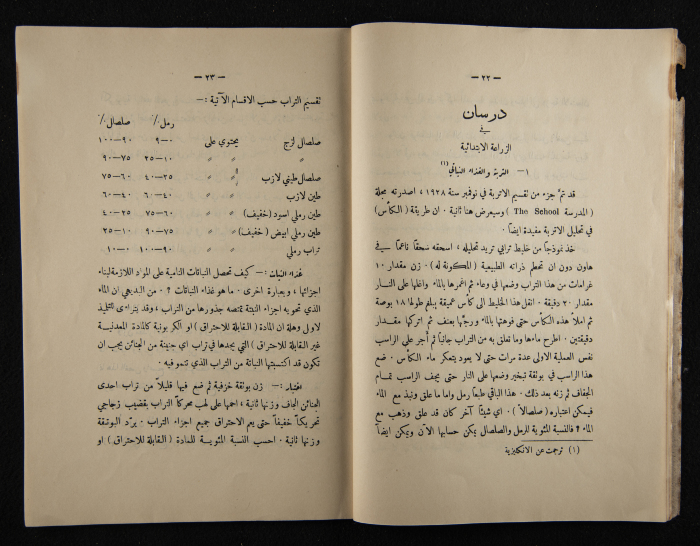 — ٢٢ —
درسان
في
الزراعة الابتدائية
١ — التربة والغذاء النباتي (١)
قد تمّ جزء من تقسيم الاتربة في نوفمبر سنة ١٩٢٨، اصدرته مجلة
( المدرسة The School ) وسيعرض هنا ثانية . ان طريقة ( الكأس )
في تحليل الاتربة مفيدة ايضاً .
خذ نموذجاً من خليط ترابي تريد تحليله ، اسحقه سحقاً ناعماً في
هاون دون ان تحطم ذراته الطبيعية ( المكونة له ) . زن مقدار ١٠
غرامات من هذا التراب وضعها في وعاء ثم اغمرها بالماء واغلها على النار
مقدار ٢٠ دقيقة . انقل هذا الخليط الى كأس عميقة يبلغ طولها ١٨ بوصة
ثم املأ هذه الكأس حتى فوهتها بالماء ورجّها بعنف ثم اتركها مقدار
دقيقتين . اطرح ماءها وما تعلق به من التراب جانباً ثم أجر على الراسب
نفس العملية الاولى عدة مرات حتى لا يعود يتعكر ماء الكأس . ضع
هذا الراسب في بوتقة تبخير وضعها على النار حتى يجف الراسب تمام
الجفاف ثم زنه بعد ذلك . هذا الباقي طبعاً رمل واما ما علق ونبذ مع الماء
فيمكن اعتباره ( صلصالاً ) . اي شيئاً آخر كان قد علق وذهب مع
الماء ؟ فالنسبة المئوية للرمل والصلصال يمكن حسابها الآن ويمكن ايضاً
(١) ترجمت عن الانكليزية
— ٢٣ —
تقسيم التراب حسب الاقسام الآتية :—
رمل٪ صلصال٪
صلصال لزج يحتوي على ٠—٩ ٩٠—١٠٠
» » » ١٠—٢٥ ٧٥—٩٠
صلصال طيني لازب » » ٢٥—٤٠ ٦٠—٧٥
طين لازب » » ٤٠—٦٠ ٤٠—٦٠
طين رملي اسود (خفيف) » » ٦٠—٧٥ ٢٥—٤٠
طين رملي ابيض ( خفيف) » » ٧٥—٩٠ ١٠—٢٥
تراب رملي » » ٩٠—١٠٠ ٠—١٠
غذاء النبات :— كيف تحصل النباتات النامية على المواد اللازمة لبناء
اجزائها ، وبعبارة اخرى . ما هو غذاء النباتات ؟ . من البديهي ان الماء
الذي تحويه اجزاء النبتة تمتصه جذورها من التراب ، وقد يتراءى للتلميذ
لاول وهلة ان المادة ( القابلة للاحتراق ) او الكربونية كالمادة المعدنية
(غير القابلة للاحتراق ) التي يجدها في تراب اي جنينة من الجنائن يجب ان
تكون قد اكتسبتها النباتة من التراب الذي تنمو فيه .
اختبار :— زن بوتقة خزفية ثم ضع فيها قليلاً من تراب احدى
الجنائن الجاف وزنها ثانية . احمها على لهب محركاً التراب بقضيب زجاجي
تحريكاً خفيفاً حتى يعم الاحتراق جميع اجزاء التراب . برّد البوتقة
وزنها ثانية . احسب النسبة المئوية للمادة ( القابلة للاحتراق ) او